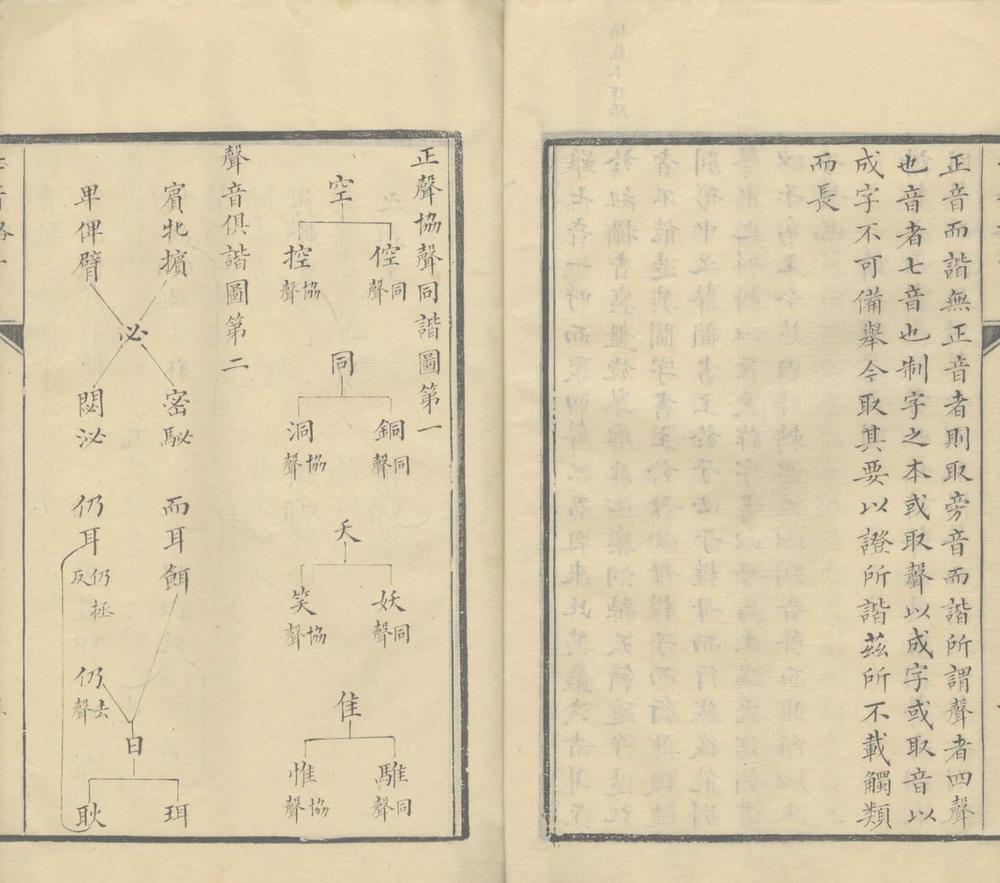 正音而諧無正音者則取旁音而諧所謂聲者四聲
也音者七音也制字之本或取聲以成字或取音以
成字不可備舉今取其要以證所諧茲所不載觸類
而長
正聲協聲同諧圖第一
空
倥同聲
控協聲
同
銅同聲
洞協聲
夭
妖同聲
笑協聲
隹
騅同聲
惟協聲
聲音俱諧圖第二
賓北擯
卑俾臂
必
密駜
閟泌
而耳餌
仍耳仍拯反
仍去聲
日
珥
耿